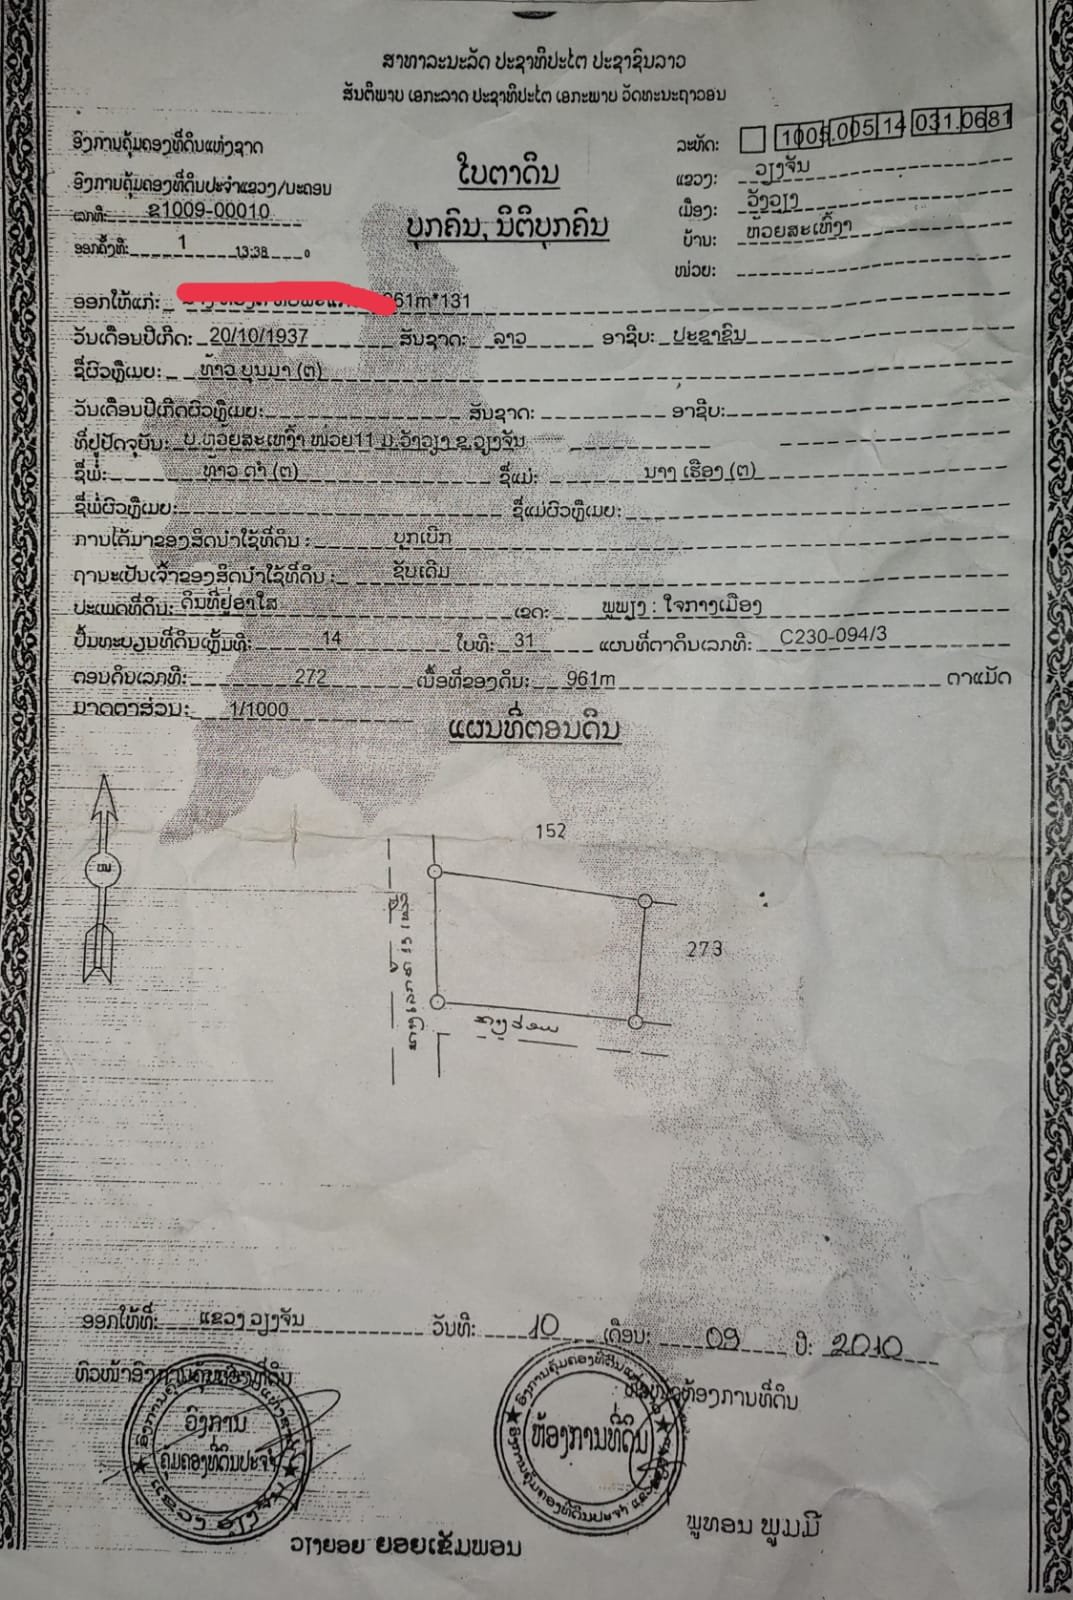 ສາທາລະນະລັດ ປະຊາທິປະໄຕ ປະຊາຊົນລາວ
ສັນຕິພາບ ເອກະລາດ ປະຊາທິປະໄຕ ເອກະພາບ ວັດທະນະຖາວອນ
ອົງການຄຸ້ມຄອງທີ່ດິນແຫ່ງຊາດ
ອົງການຄຸ້ມຄອງທີ່ດິນປະຈຳແຂວງ/ນະຄອນ
ເລກທີ: ຂ1009-00010
ອອກຄັ້ງທີ: 1 13:38
ໃບຕາດິນ
ບຸກຄົນ, ນິຕິບຸກຄົນ
ລະຫັດ: 1005.005 14 031.0681
ແຂວງ: ວຽງຈັນ
ເມືອງ: ວັງວຽງ
ບ້ານ: ຫ້ວຍສະເຫງົ້າ
ໜ່ວຍ:
ອອກໃຫ້ແກ່: 961m*131
ວັນເດືອນປີເກີດ: 20/10/1937 ສັນຊາດ: ລາວ ອາຊີບ: ປະຊາຊົນ
ຊື່ຜົວຫຼືເມຍ: ທ້າວ ບຸນມາ (ຕ)
ວັນເດືອນປີເກີດຜົວຫຼືເມຍ: ສັນຊາດ: ອາຊີບ:
ທີ່ຢູ່ປັດຈຸບັນ: ບ.ຫ້ວຍສະເຫງົ້າ ໜ່ວຍ11 ມ.ວັງວຽງ ຂ.ວຽງຈັນ
ຊື່ພໍ່: ທ້າວ ດຳ (ຕ) ຊື່ແມ່: ນາງ ເຮືອງ (ຕ)
ຊື່ພໍ່ຜົວຫຼືເມຍ: ຊື່ແມ່ຜົວຫຼືເມຍ:
ການໄດ້ມາຂອງສິດນຳໃຊ້ທີ່ດິນ : ບຸກເບີກ
ຖານະເປັນເຈົ້າຂອງສິດນຳໃຊ້ທີ່ດິນ : ຊັບເດີມ
ປະເພດທີ່ດິນ: ດິນທີ່ຢູ່ອາໃສ ເຂດ: ພູພຽງ : ໃຈກາງເມືອງ
ປຶ້ມທະບຽນທີ່ດິນເຫຼັ້ມທີ: 14 ໃບທີ: 31 ແຜນທີ່ຕາດິນເລກທີ: C230-094/3
ຕອນດິນເລກທີ: 272 ເນື້ອທີ່ຂອງດິນ: 961m ຕາແມັດ
ມາດຕາສ່ວນ: 1/1000
ແຜນທີ່ຕອນດິນ
152
273
ທາງຮ່ວມ
ອອກໃຫ້ທີ່: ແຂວງ ວຽງຈັນ ວັນທີ: 10 ເດືອນ: 09 ປີ: 2010
ຫົວໜ້າອົງການຄຸ້ມຄອງທີ່ດິນ
ຫົວໜ້າຫ້ອງການທີ່ດິນ
ອົງການ
ຄຸ້ມຄອງທີ່ດິນປະຈຳ
ຫ້ອງການທີ່ດິນ
ພູທອນ ພູມມີ
ວຽງຍອຍ ຍອຍເຂັມພອນ